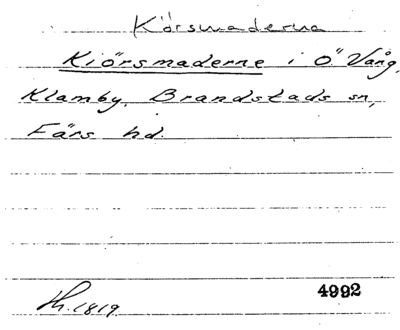 Körsmaderna
Kiörsmaderne i Ö Vång,
Klamby, Brandstads sn,
Färs hd.
Th. 1819.
4992